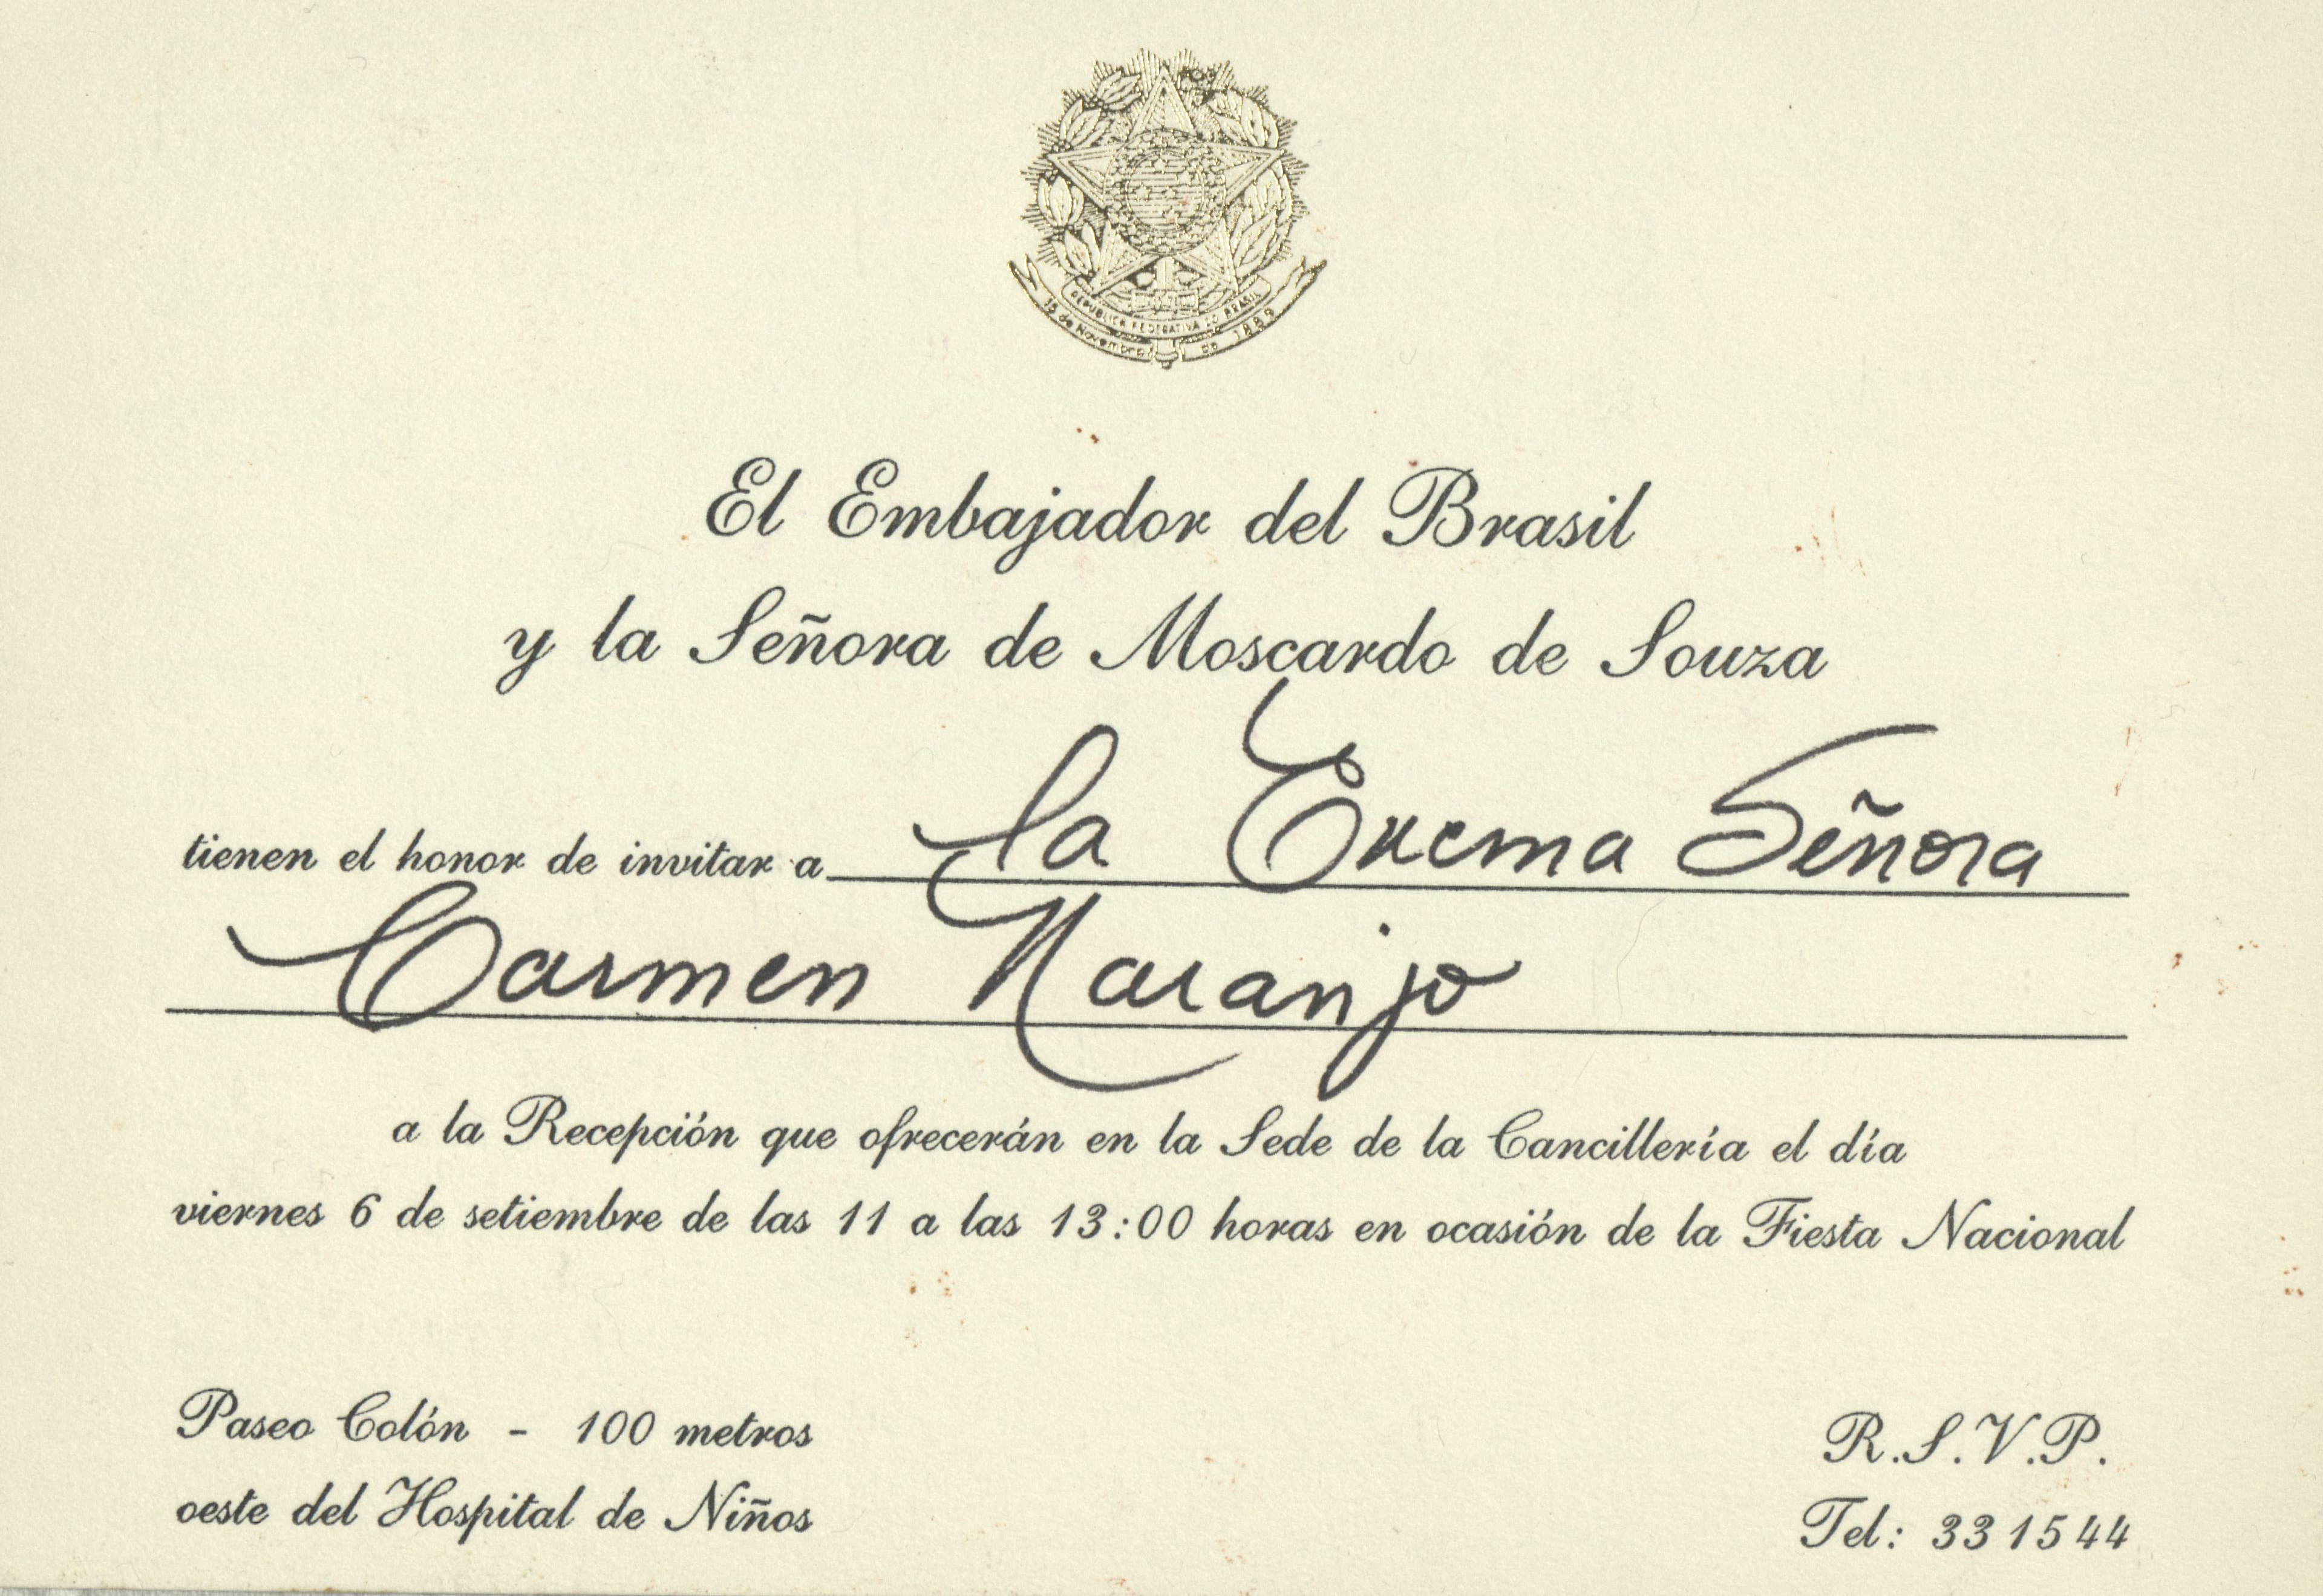 REPUBLICA FEDERATIVA DO BRASIL
15 de Novembro de 1889
El Embajador del Brasil
y la Señora de Moscardo de Souza
tienen el honor de invitar a La Exema Señora
Carmen Naranjo
a la Recepción que ofrecerán en la Sede de la Cancillería el día
viernes 6 de setiembre de las 11 a las 13:00 horas en ocasión de la Fiesta Nacional
Paseo Colón - 100 metros
oeste del Hospital de Niños
R.S.V.P.
Tel: 331544